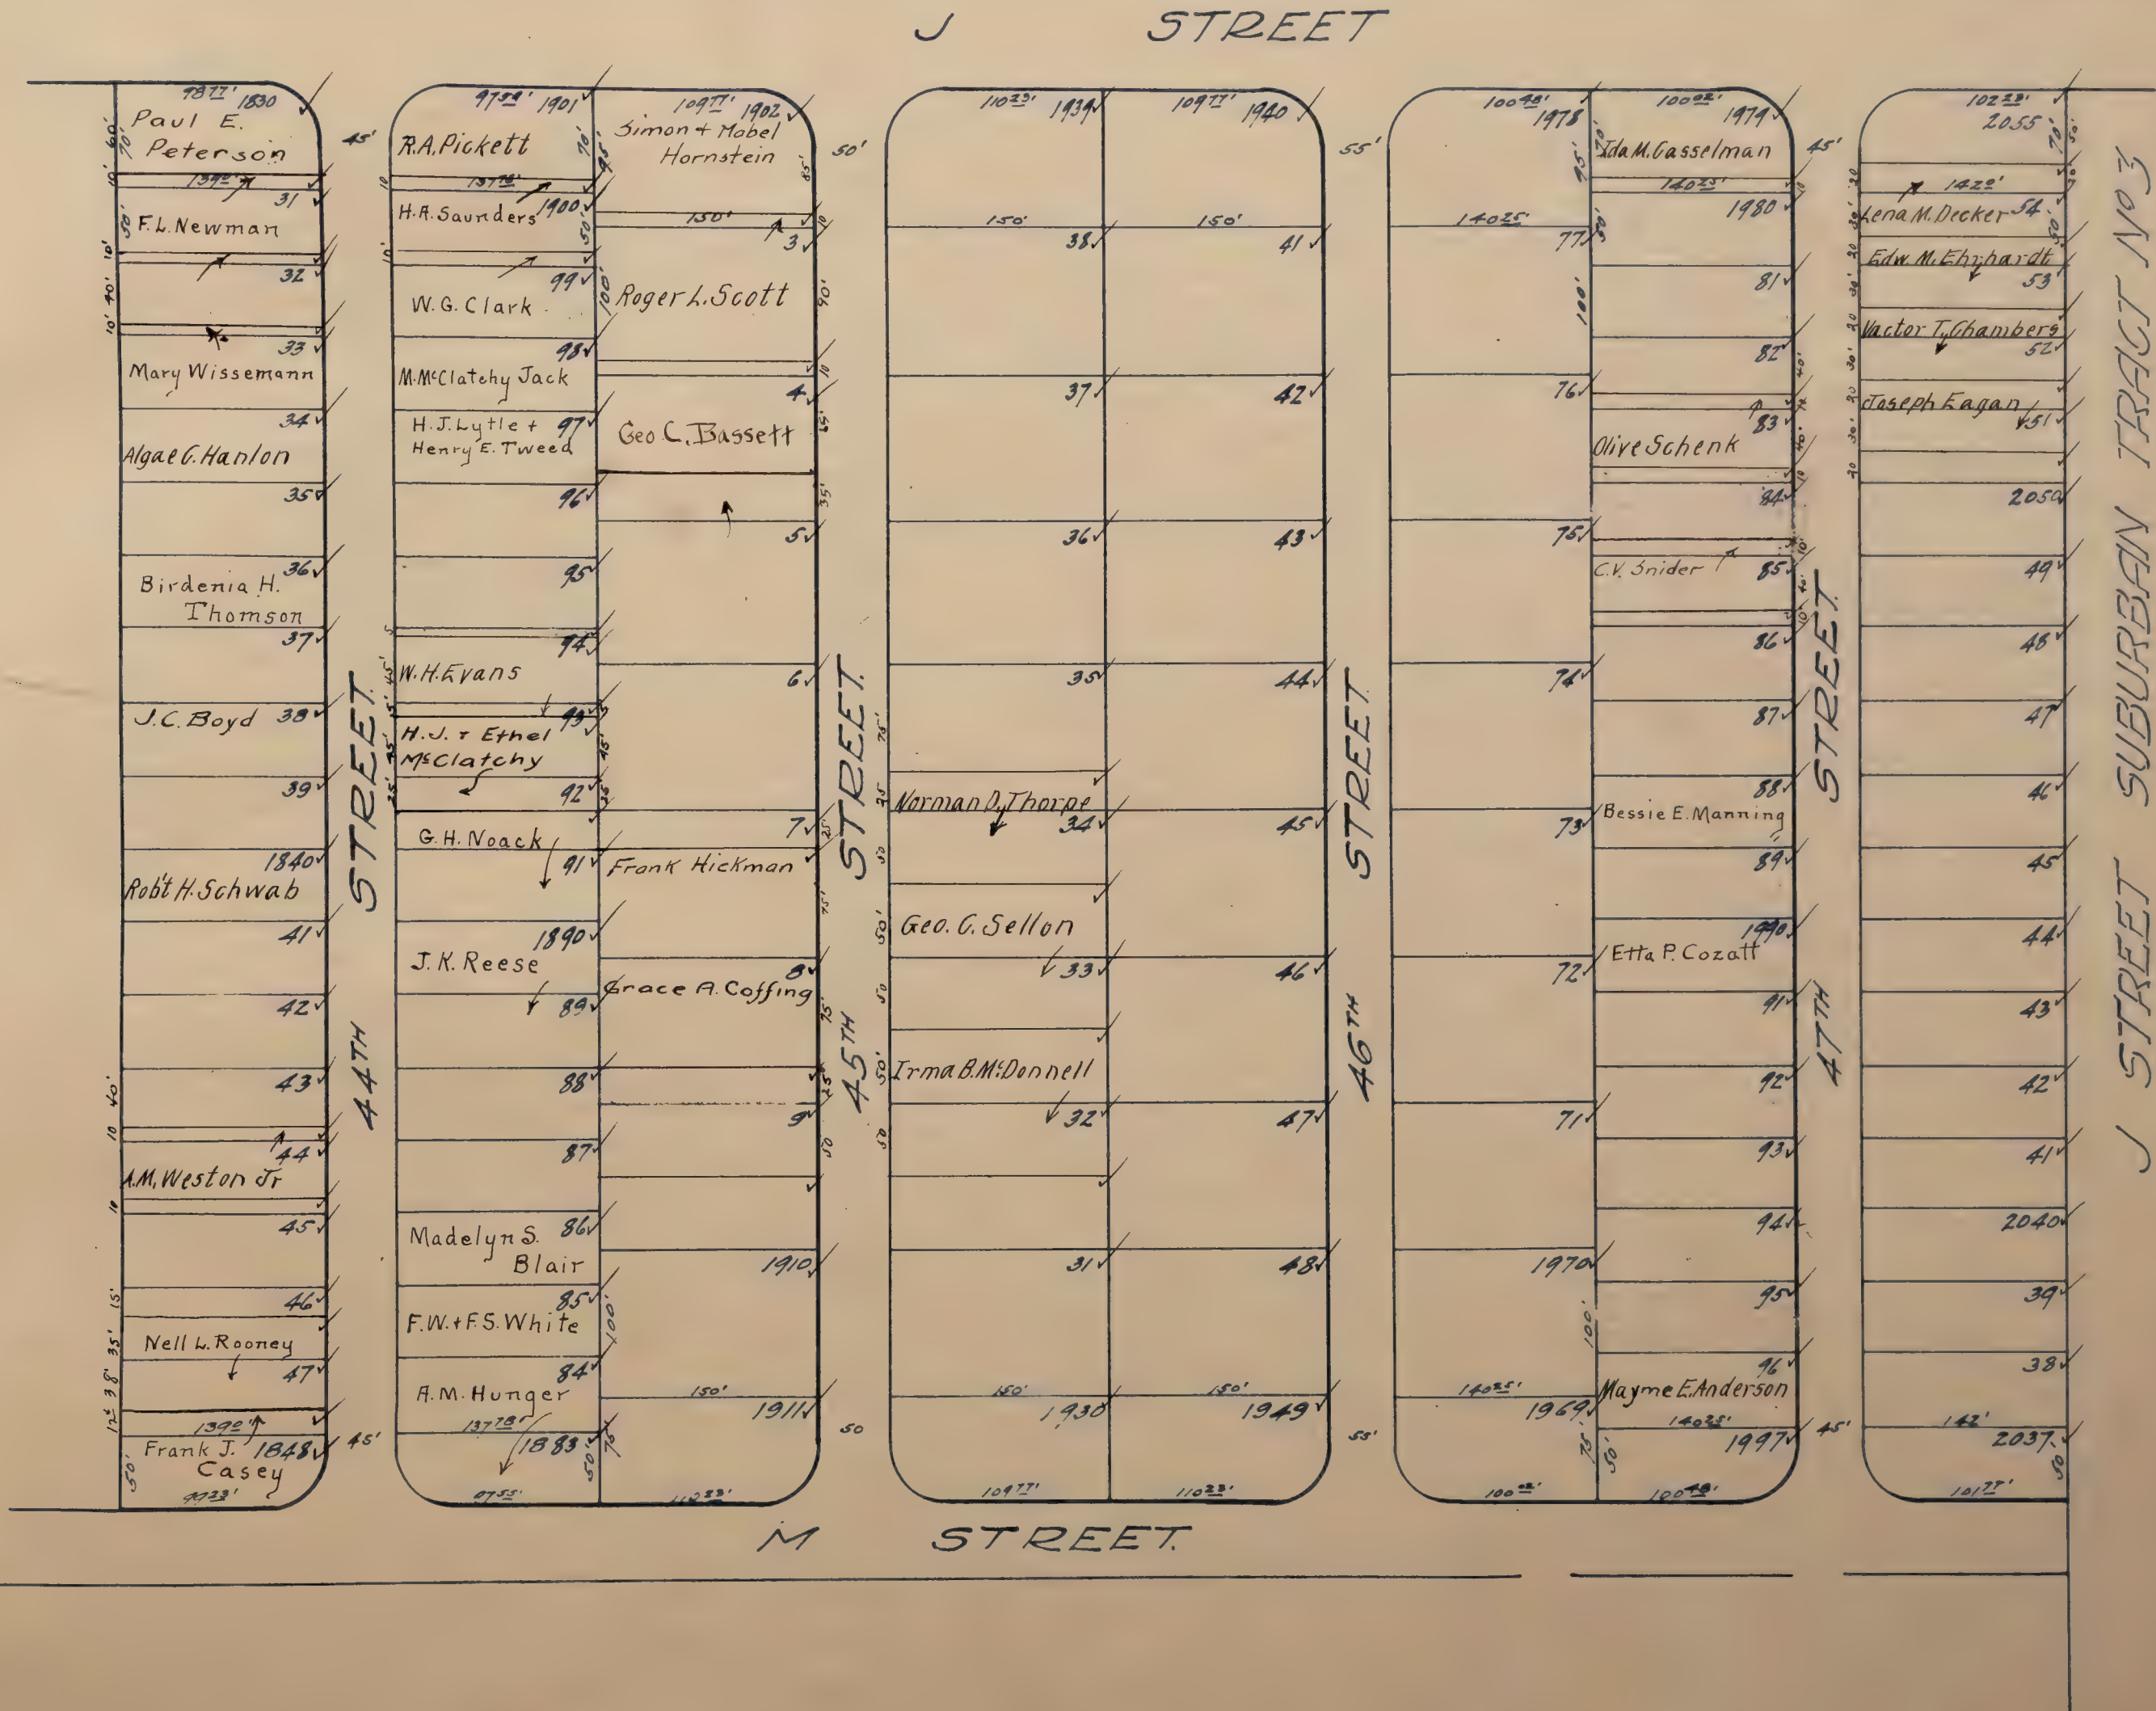 J STREET
98 77' 1830
Paul E.
Peterson
60'
70'
10'
139 0'
31
50'
F.L. Newman
10'
32
40'
10'
33
Mary Wissemann
34
Algae C. Hanlon
35
36
Birdenia H.
Thomson
37
J.C. Boyd 38
39
1840
Rob't H. Schwab
41
42
43
40'
10
44
A.M. Weston Jr
10
45
15'
46
35'
Nell L. Rooney
47
38'
139 0'
Frank J. 1848
Casey
50'
99 23'
45'
44TH STREET.
45'
97 59' 1901
R.A. Pickett
70'
45'
10
137 78'
H.A. Saunders 1900
50'
10'
99
W.G. Clark
100'
98
M. McClatchy Jack
H.J. Lytle + 97
Henry E. Tweed
96
95
5
94
45'
W.H. Evans
5'
93
H.J. + Ethel
McClatchy
45'
25'
92
G.H. Noack
91
1890
J.K. Reese
89
88
87
86
Madelyn S.
Blair
85
F.W. + F.S. White
100'
84
A.M. Hunger
137 78'
1883
50'
75'
97 55'
109 77' 1902
Simon + Mabel
Hornstein
85'
150'
10
3
Roger L. Scott
90'
10
4
Geo. C. Bassett
65'
35'
5
6
7
25'
Frank Hickman
75'
8
Grace A. Coffing
75'
25'
9
50
1910
150'
1911
110 23'
50'
45TH STREET.
50
110 23' 1939
150'
38
37
36
35
75'
25
Norman D. Thorpe
34
50
50'
Geo. C. Sellon
33
50
50'
Irma B. McDonnell
32
50
31
150'
1930
109 77'
109 77' 1940
150'
41
42
43
44
45
46
47
48
150'
1949
110 23'
55'
46TH STREET.
55'
100 48'
1978
45'
140 25'
77
100'
76
75
74
73
72
71
1970
100'
140 25'
1969
75'
100 02'
100 02'
1979
70'
Ida M. Casselman
140 25'
10
1980
50'
81
82
40'
83
Olive Schenk
40'
10
84
10'
C.V. Snider 85
40'
10'
86
87
88
Bessie E. Manning
89
1990
Etta P. Cozatt
91
92
93
94
95
96
Mayme E. Anderson
140 25'
1997
50'
100 48'
45'
47TH STREET.
45'
102 23'
2055
70'
50'
20
142 0'
20'
Lena M. Decker 54
30'
50'
20
Edw. M. Ehrhardt
53
30'
20
Vactor T. Chambers
52
30'
20
Joseph Eagan
51
30'
20
2050
49
48
47
46
45
44
43
42
41
2040
39
38
142'
2037
50'
101 77'
J STREET SUBURBAN TRACT No 3
M STREET.